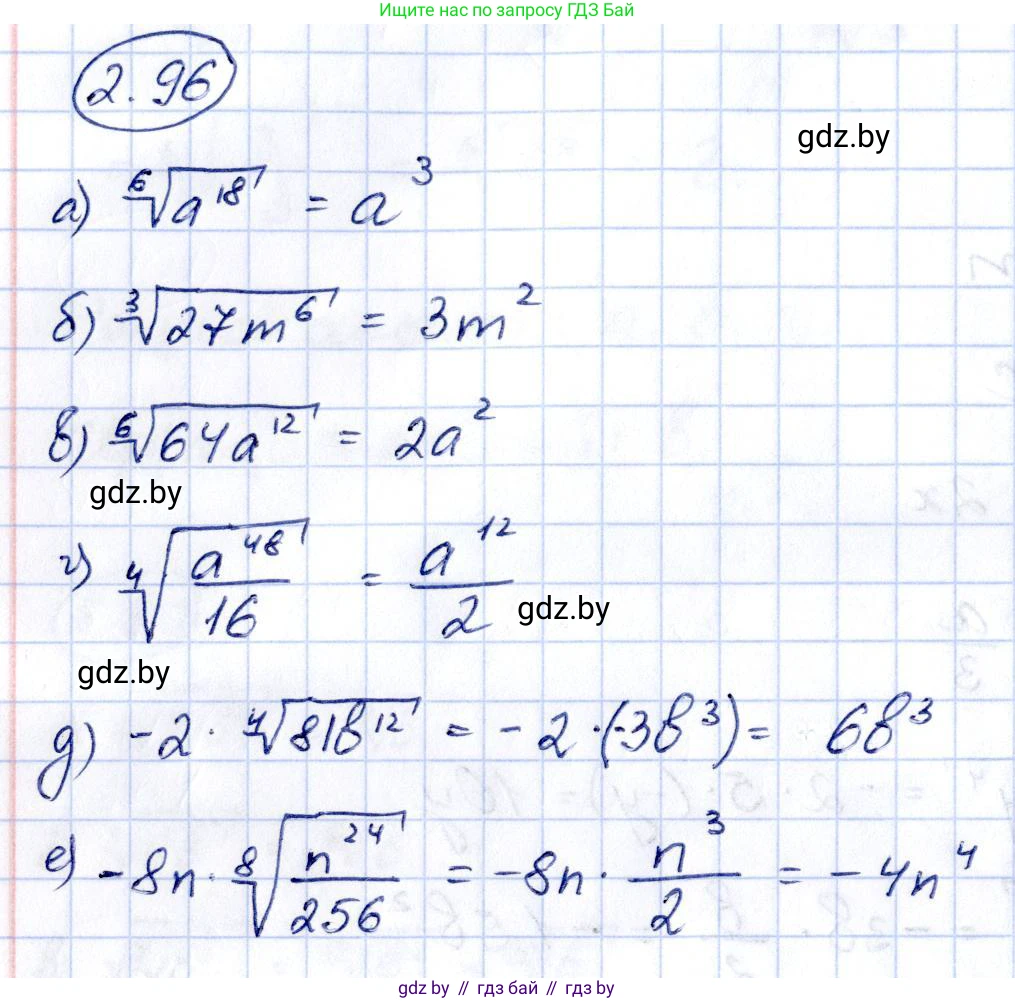 Ищите нас по запросу ГДЗ Бай
2.96
gdz.by
а) ⁶√(a¹⁸) = a³
б) ³√(27m⁶) = 3m²
в) ⁶√(64a¹²) = 2a²
gdz.by
г) ⁴√(a⁴⁸/16) = a¹²/2
gdz.by
gdz.by
д) -2 · ⁴√(81b¹²) = -2·(-3b³) = 6b³
е) -8n · ⁸√(n²⁴/256) = -8n · n³/2 = -4n⁴
gdz.by // гдз бай // гдз by